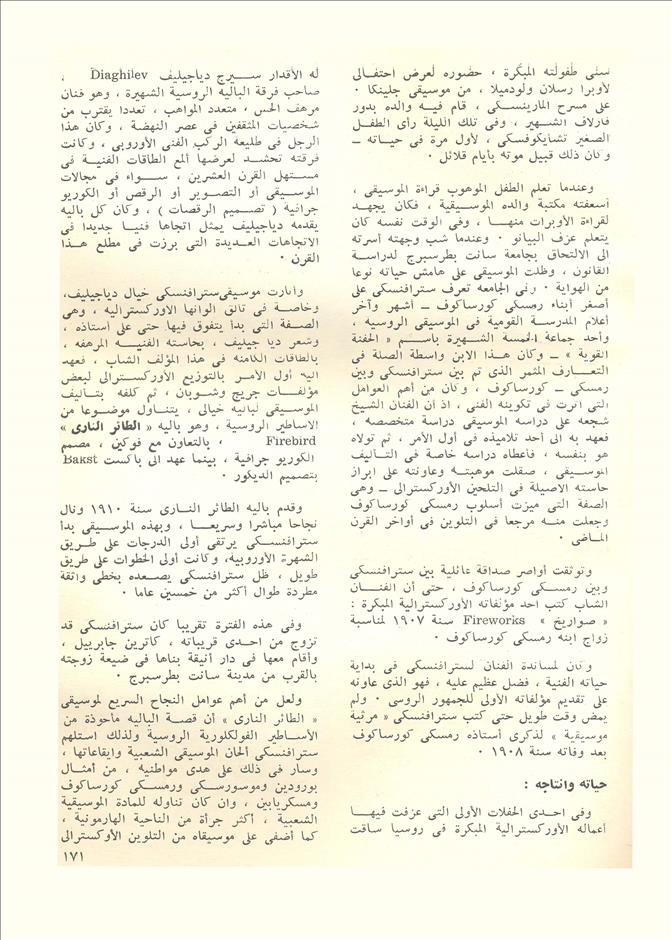 سنى طفولته المبكرة ، حضوره لعرض احتفالى
لأوبرا رسلان ولودميلا ، من موسيقى جلينكا ٠
على مسرح المارينسكى ، قام فيه والده بدور
فارلاف الشهير ، وفى تلك الليلة رأى الطفل
الصغير تشايكوفسكى ، لأول مرة فى حياته ــ
وكان ذلك قبيل موته بأيام قلائل ٠
وعندما تعلم الطفل الموهوب قراءة الموسيقى ،
أسعفته مكتبة والده الموسيقية ، فكان يجهد
لقراءة الأوبرات منها ، وفى الوقت نفسه كان
يتعلم عزف البيانو ٠ وعندما شب وجهته أسرته
الى الالتحاق بجامعة سانت بطرسبرج لدراسة
القانون ، وظلت الموسيقى على هامش حياته نوعا
من الهواية ٠ وفى الجامعة تعرف سترافنسكى على
أصغر أبناء رمسكى كورساكوف ــ أشهر وآخر
أعلام المدرسة القومية فى الموسيقى الروسية ،
وأحد جماعة الخمسة الشهيرة باسم « الحفنة
القوية » ــ وكان هذا الابن واسطة الصلة فى
التعارف المثمر الذى تم بين سترافنسكى وبين
رمسكى ــ كورساكوف ، وكان من أهم العوامل
التى أثرت فى تكوينه الفنى ، اذ أن الفنان الشيخ
شجعه على دراسة الموسيقى دراسة متخصصة ،
فعهد به الى أحد تلاميذه فى أول الأمر ، ثم تولاه
هو بنفسه ، فأعطاه دراسه خاصة فى التأليف
الموسيقى ، صقلت موهبته وعاونته على ابراز
حاسته الاصيلة فى التلحين الأوركسترالى ــ وهى
الصفة التى ميزت أسلوب رمسكى كورساكوف
وجعلت منه مرجعا فى التلوين فى أواخر القرن
الماضى ٠
وتوثقت أواصر صداقة عائلية بين سترافنسكى
وبين رمسكى كورساكوف ، حتى أن الفنان
الشاب كتب احد مؤلفاته الأوركسترالية المبكرة :
« صواريخ » Fireworks سنة ١٩٠٧ لمناسبة
زواج ابنة رمسكى كورساكوف ٠
وكان لمساندة الفنان لسترافنسكى فى بداية
حياته الفنية ، فضل عظيم عليه ، فهو الذى عاونه
على تقديم مؤلفاته الأولى للجمهور الروسى ٠ ولم
يمض وقت طويل حتى كتب سترافنسكى « مرثية
موسيقية » لذكرى أستاذه رمسكى كورساكوف
بعد وفاته سنة ١٩٠٨ ٠
حياته وانتاجه :
وفى احدى الحفلات الأولى التى عزفت فيها
أعماله الأوركسترالية المبكرة فى روسيا ساقت
له الأقدار سيرج دياجيليف Diaghilev ،
صاحب فرقة الباليه الروسية الشهيرة ، وهو فنان
مرهف الحس ، متعدد المواهب ، تعددا يقترب من
شخصيات المثقفين فى عصر النهضة ، وكان هذا
الرجل فى طليعة الركب الفنى الأوروبى ، وكانت
فرقته تحشد لعرضها ألمع الطاقات الفنية فى
مستهل القرن العشرين ، سواء فى مجالات
الموسيقى أو التصوير أو الرقص أو الكوريو
جرافية ( تصميم الرقصات ) ، وكان كل باليه
يقدمه دياجيليف يمثل اتجاها فنيا جديدا فى
الاتجاهات العديدة التى برزت فى مطلع هذا
القرن ٠
وأثارت موسيقى سترافنسكى خيال دياجيليف،
وخاصة فى تألق ألوانها الأوركسترالية ، وهى
الصفة التى بدأ يتفوق فيها حتى على أستاذه ،
وشعر ديا جيليف ، بحاسته الفنية المرهفه ،
بالطاقات الكامنة فى هذا المؤلف الشاب ، فعهد
اليه أول الأمر بالتوزيع الأوركسترالى لبعض
مؤلفات جريج وشوبان ، ثم كلفه بتأليف
الموسيقى لباليه خيالى ، يتناول موضوعا من
الاساطير الروسية ، وهو باليه « الطائر النارى »
Firebird ، بالتعاون مع فوكين ، مصمم
الكوريو جرافية ، بينما عهد الى باكست Bakst
بتصميم الديكور ٠
وقدم باليه الطائر النارى سنة ١٩١٠ ونال
نجاحا مباشرا وسريعا ، وبهذه الموسيقى بدأ
سترافنسكى يرتقى أولى الدرجات على طريق
الشهرة الأوروبية، وكانت أولى الخطوات على طريق
طويل ، ظل سترافنسكى يصعده بخطى واثقة
مطردة طوال أكثر من خمسين عاما ٠
وفى هذه الفترة تقريبا كان سترافنسكى قد
تزوج من احدى قريباته ، كاترين جابرييل ،
وأقام معها فى دار أنيقة بناها فى ضيعة زوجته
بالقرب من مدينة سانت بطرسبرج ٠
ولعل من أهم عوامل النجاح السريع لموسيقى
« الطائر النارى » أن قصة الباليه مأخوذة من
الأساطير الفولكلورية الروسية ولذلك استلهم
سترافنسكى ألحان الموسيقى الشعبية وايقاعاتها ،
وسار فى ذلك على هدى مواطنيه ، من أمثال
بورودين وموسورسكى ورمسكى كورساكوف
ومسكريابين ، وان كان تناوله للمادة الموسيقية
الشعبية ، أكثر جرأة من الناحية الهارمونية ،
كما أضفى على موسيقاه من التلوين الأوكسترالى
١٧١